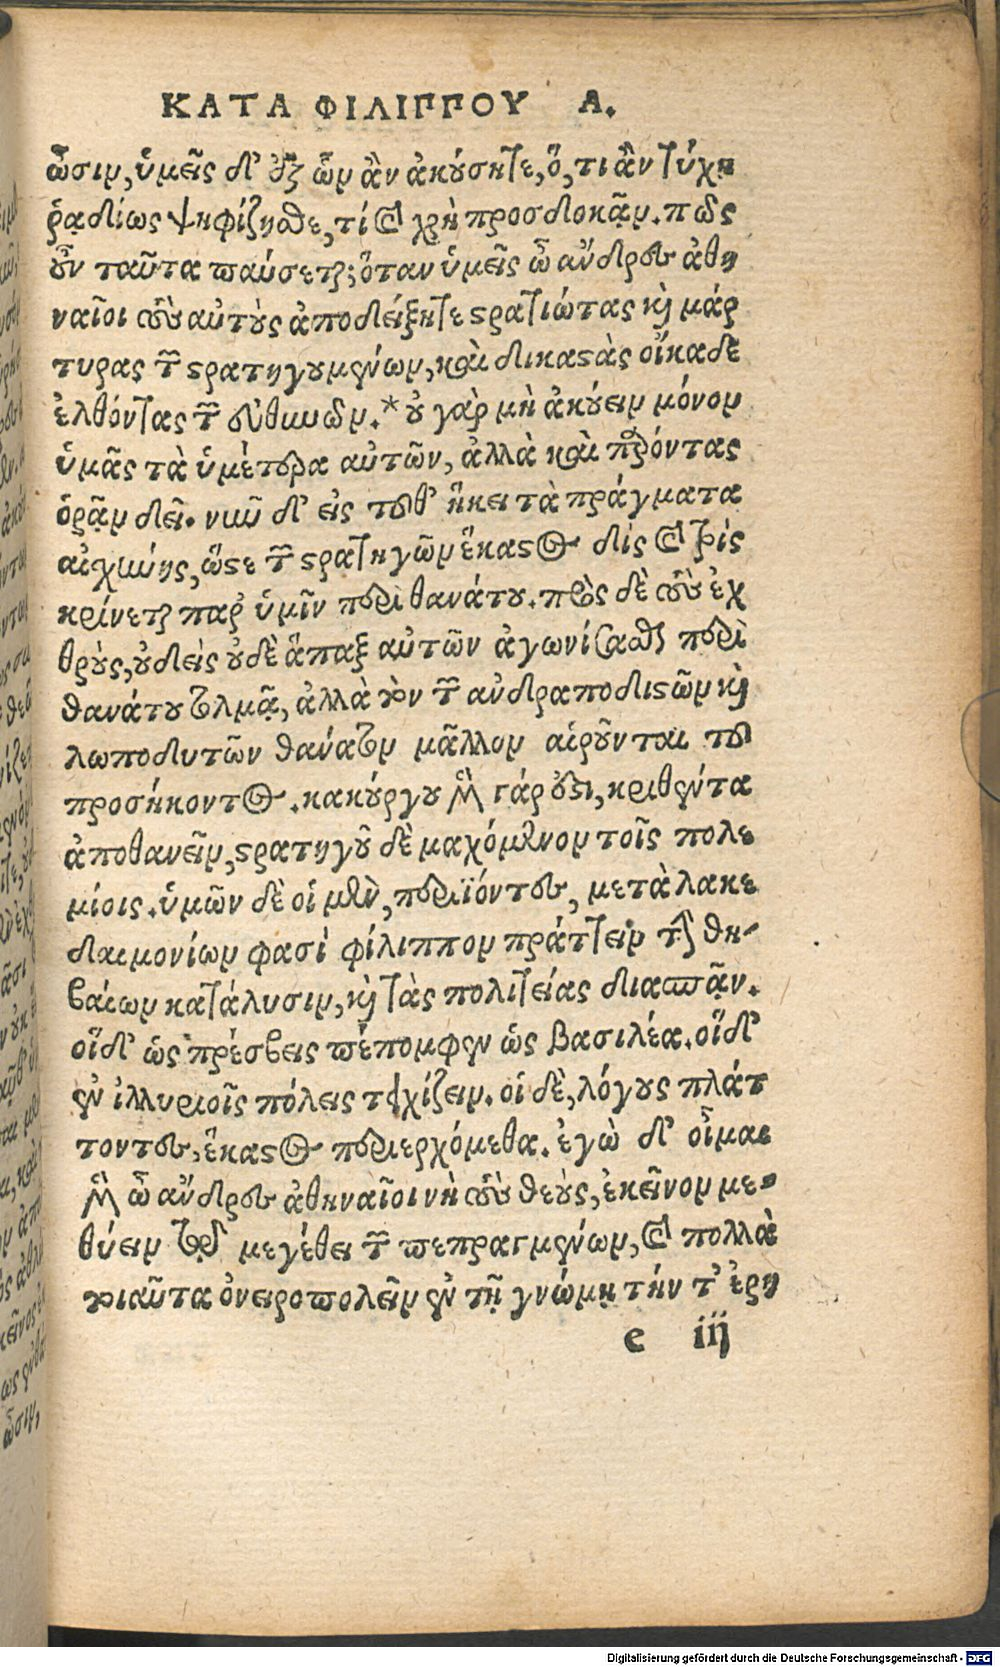 ΚΑΤΑ ΦΙΛΙΠΠΟΥ Α.
ὦσιν, ὑμεῖς δ' ἐξ ὧν ἂν ἀκούσητε, ὅ, τι ἂν τύχη
ῥᾳδίως ψηφίζησθε, τί καὶ χρὴ προσδοκᾷν. πῶς
οὖν ταῦτα παύσεται; ὅταν ὑμεῖς ὦ ἄνδρες ἀθη
ναῖοι τοὺς αὐτοὺς ἀποδείξητε στρατιώτας καὶ μάρ
τυρας τῶν στρατηγουμένων, καὶ δικαστὰς οἴκαδε
ἐλθόντας τῶν εὐθυνῶν.* οὐ γὰρ μὴ ἀκούειν μόνον
ὑμᾶς τὰ ὑμέτερα αὐτῶν, ἀλλὰ καὶ παρόντας
ὁρᾷν δεῖ. νῦν δ' εἰς τοῦθ' ἥκει τὰ πράγματα
αἰσχύνης, ὥστε τῶν στρατηγῶν ἕκαστος δὶς καὶ τρὶς
κρίνεται παρ' ὑμῖν περὶ θανάτου. πρὸς δὲ τοὺς ἐχ
θροὺς, οὐδεὶς οὐδὲ ἅπαξ αὐτῶν ἀγωνίσασθαι περὶ
θανάτου τολμᾷ, ἀλλὰ τὸν τῶν ἀνδραποδιστῶν καὶ
λωποδυτῶν θάνατον μᾶλλον αἱροῦνται τοῦ
προσήκοντος. κακούργου μὲν γάρ ἐστι, κριθέντα
ἀποθανεῖν, στρατηγοῦ δὲ μαχόμενον τοῖς πολε
μίοις. ὑμῶν δὲ οἱ μὲν, περιϊόντες, μετὰ λακε
δαιμονίων φασὶ φίλιππον πράττειν τὴν θη-
βαίων κατάλυσιν, καὶ τὰς πολιτείας διασπᾷν.
οἵδ' ὡς πρέσβεις πέπομφεν ὡς βασιλέα. οἵδ'
ἐν ἰλλυριοῖς πόλεις τειχίζειν. οἱ δὲ, λόγους πλάτ
τοντες, ἕκαστος περιερχόμεθα. ἐγὼ δ' οἶμαι
μὲν ὦ ἄνδρες ἀθηναῖοι νὴ τοὺς θεοὺς, ἐκεῖνον με-
θύειν τῷ μεγέθει τῶν πεπραγμένων, καὶ πολλὰ
τοιαῦτα ὀνειροπολεῖν ἐν τῇ γνώμῃ τήν τ' ἐρη
e iij
Digitalisierung gefördert durch die Deutsche Forschungsgemeinschaft - DFG